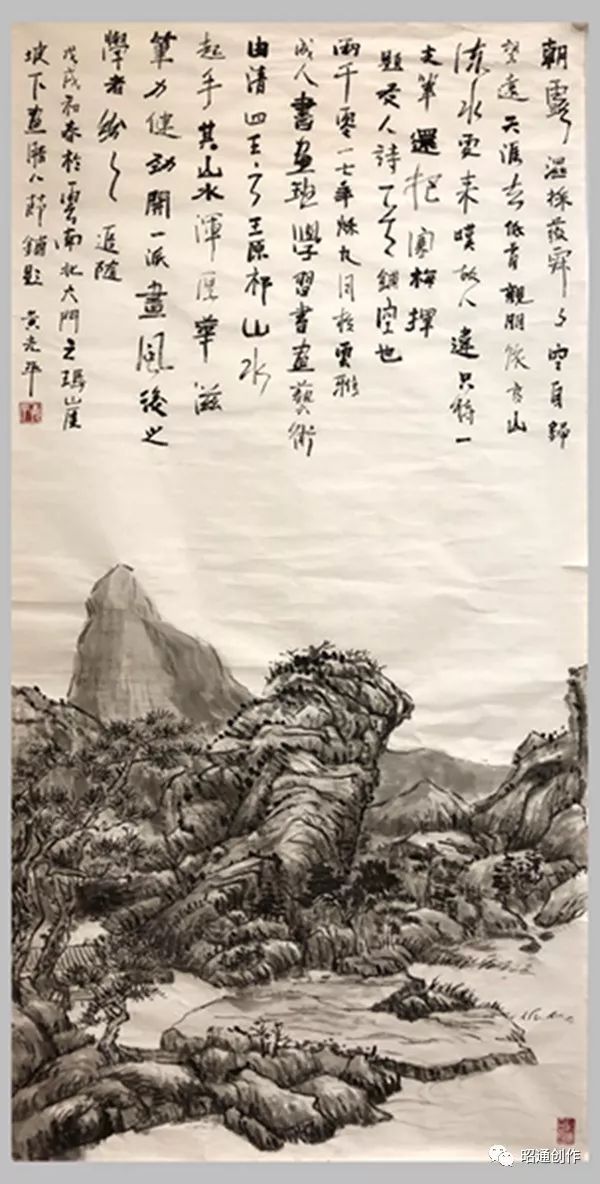 朝露濕採薇舜日空自歸
望遠天涯去低首觀朋侯青山
流水更来嘆故人違只稀一
支筆還把圖梅揮
題友人詩一首鎮空也
兩千零一七年秋九月於雲雅
成人書畫班學習書畫藝術
由清四王之王原祁山水
起手其山水渾厚華滋
筆力健勁開一派畫風後之
學者紛々追隨
戊戌初春於雲南北大門之瑪崖
坡下畫 題 黄先平
昭通创作